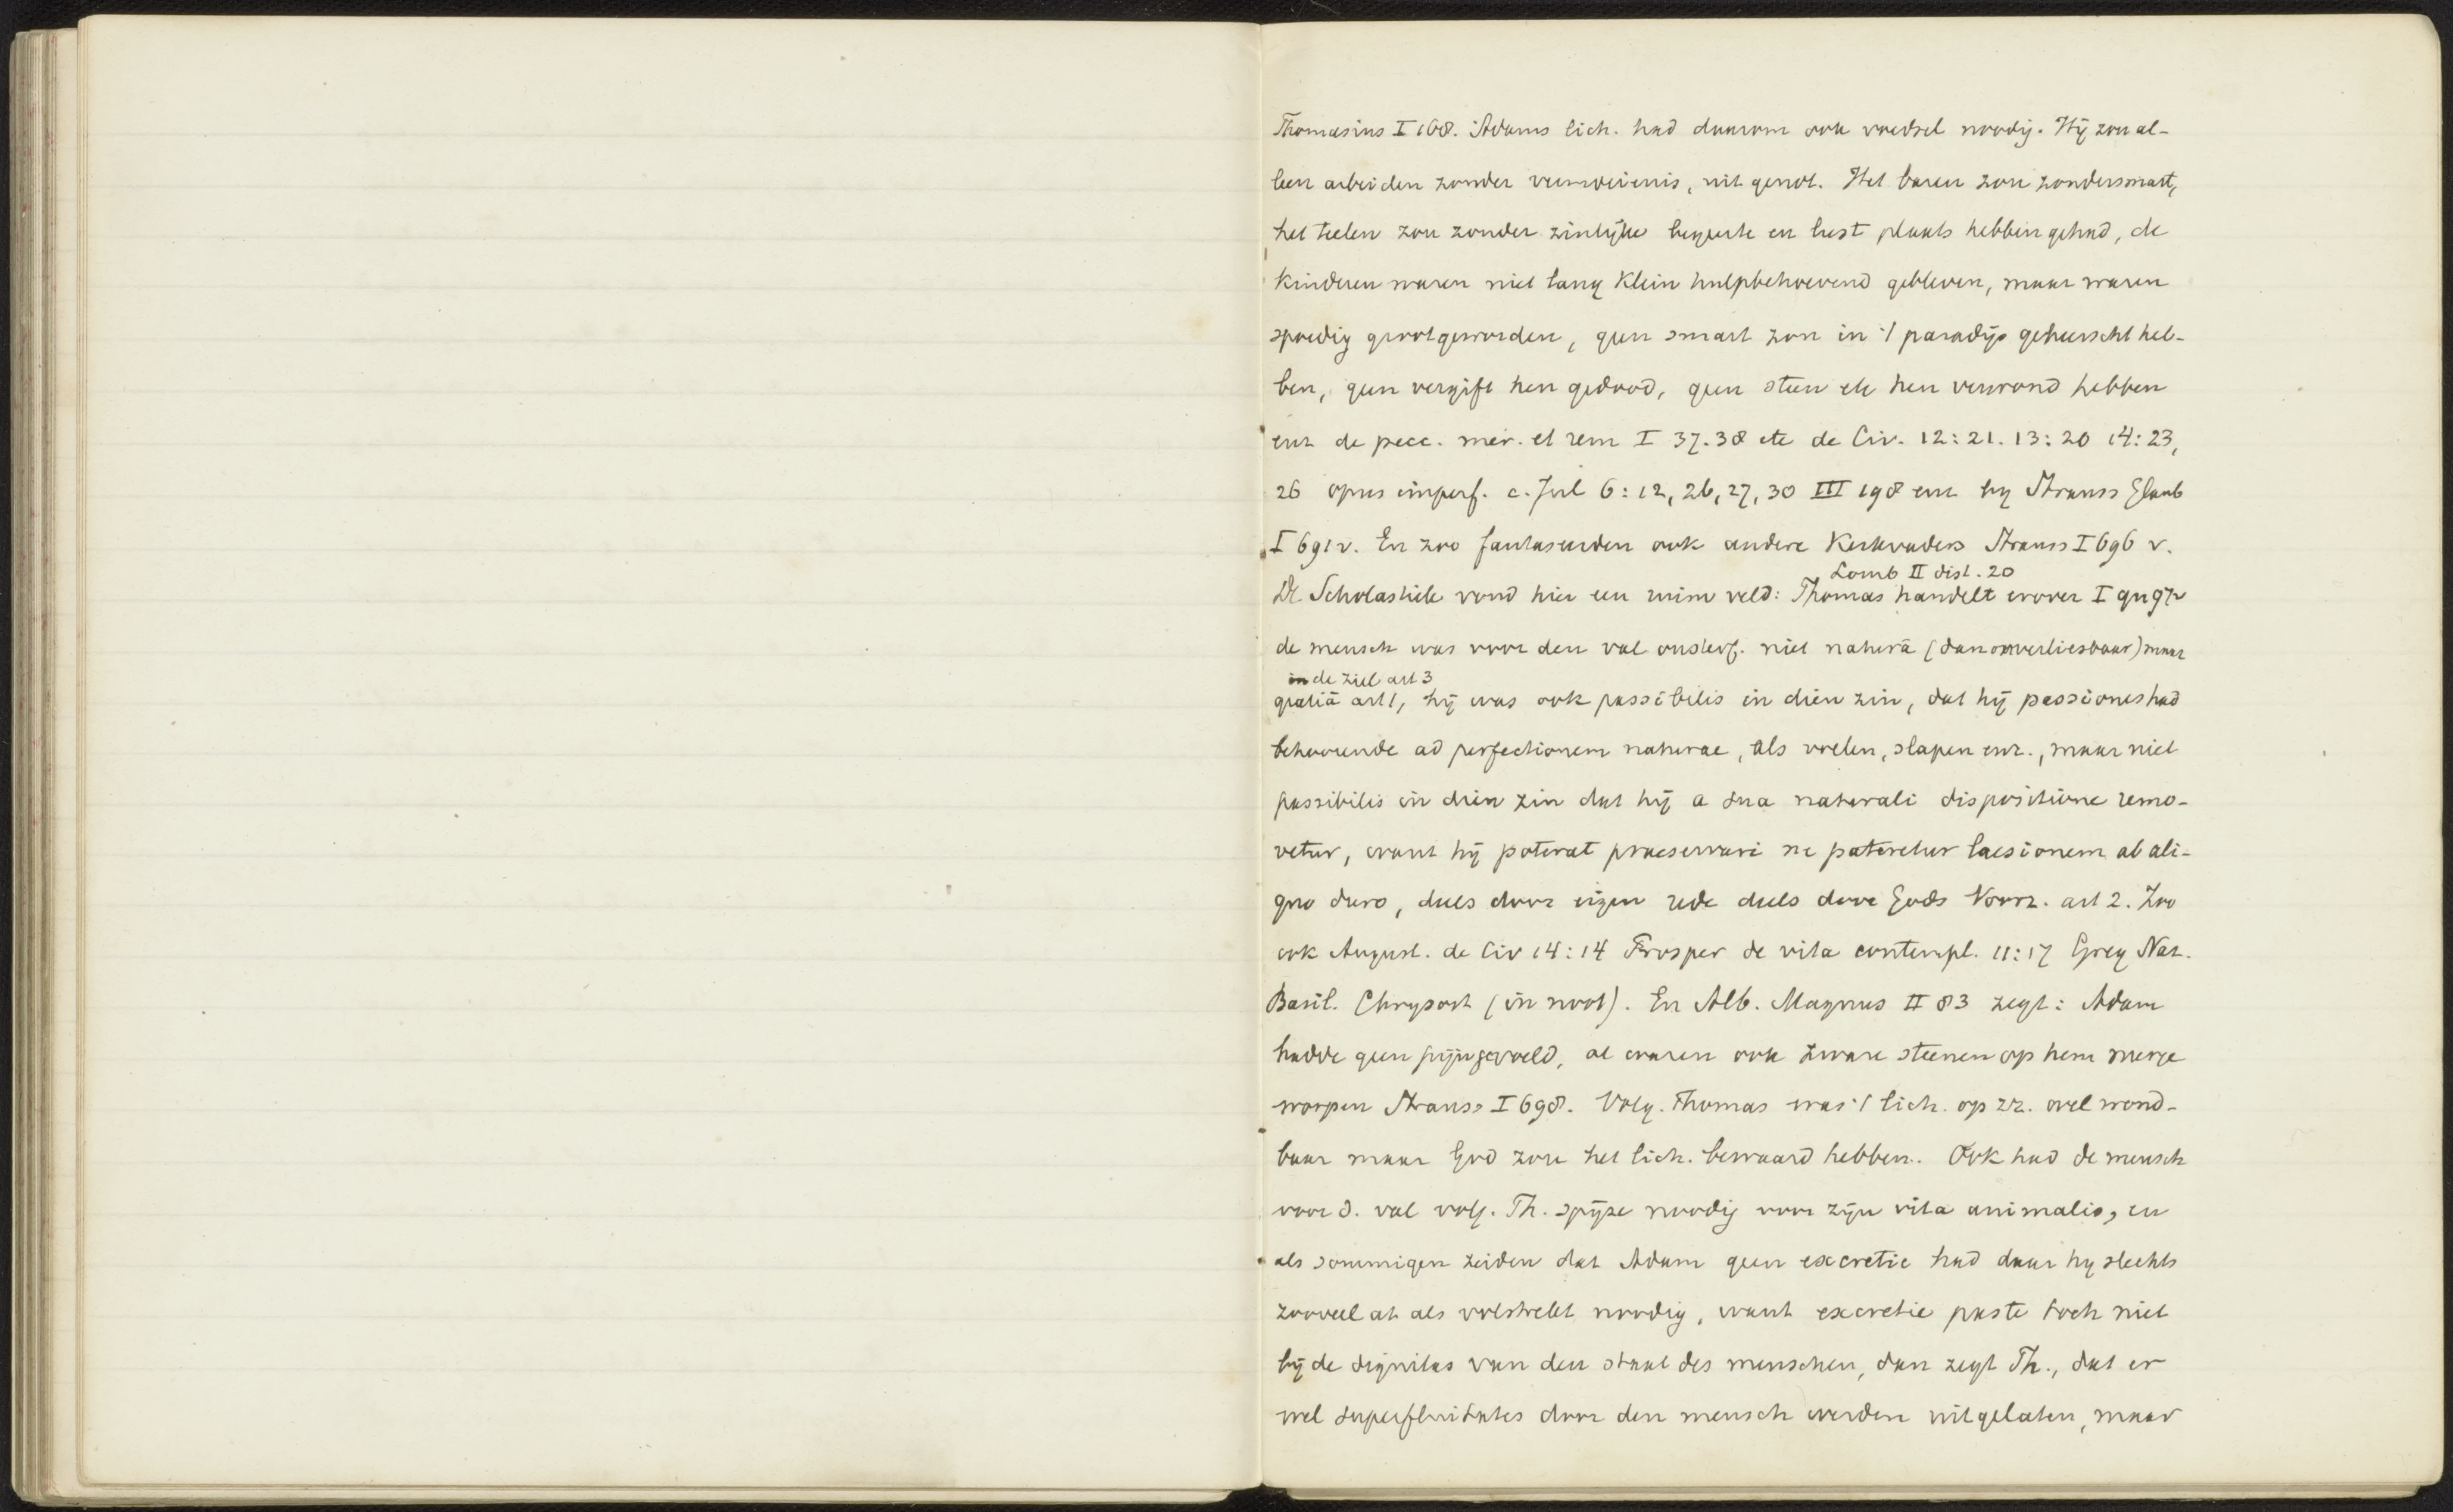 Thomasius I 168. Adams lich. had daarom ook voedsel noodig. Hij zou al-
leen arbeiden zonder vermoeienis, uit genot. Het baren zou zonder smart,
het teelen zou zonder zinlijke begeerte en lust plaats hebben gehad, de
kinderen waren niet lang klein hulpbehoevend gebleven, maar waren
spoedig groot geworden, geen smart zou in 't paradijs geheerscht heb-
ben, geen vergift hen gedood, geen steen etc hen verwond hebben
enz de pecc. mer. et rem I 37.38 etc de Civ. 12:21. 13:20 14:23,
26 opus imperf. c. Jul 6:12, 26, 27, 30 III 198 enz bij Strauss Glaub
I 691 v. En zoo fantaseerden ook andere Kerkvaders Strauss I 696 v.
Lomb II dist. 20
De Scholastiek vond hier een ruim veld: Thomas handelt erover I qu 97
de mensch was voor den val onsterf. niet naturâ (dan onverliesbaar) maar
in de ziel art 3
gratiâ art 1, hij was ook passibilis in dien zin, dat hij passiones had
behoorende ad perfectionem naturae, als voelen, slapen enz., maar niet
passibilis in dien zin dat hij a sua naturali dispositione remo-
vetur, want hij poterat praeservari ne pateretur laesionem ab ali-
quo duro, deels door eigen rede deels door Gods Voorz. art 2. Zoo
ook August. de Civ 14:14 Prosper de vita contempl. 11:17 Greg Naz.
Basil. Chrysost (in noot). En Alb. Magnus II 83 zegt: Adam
hadde geen pijn gevoeld, al waren ook zware steenen op hem nerge
worpen Strauss I 698. Volg. Thomas was 't lich. op zz. wel wond-
baar maar God zou het lich. bewaard hebben. Ook had de mensch
voor d. val volg. Th. spijze noodig voor zijn vita animalis, en
als sommigen zeiden dat Adam geen excretie had daar hij slechts
zooveel at als volstrekt noodig, want excretie paste toch niet
bij de dignitas van den staat des menschen, dan zegt Th., dat er
wel superfluitates door den mensch werden uitgelaten, maar